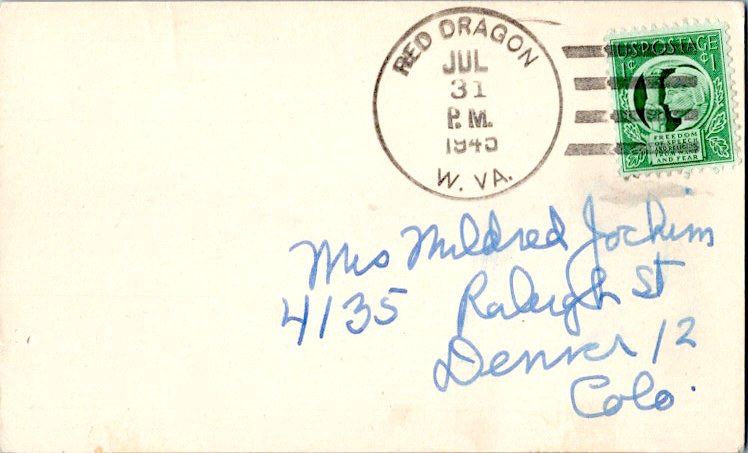 RED DRAGON
JUL
31
P.M.
1945
W. VA.
US POSTAGE
1¢ 1¢
FREEDOM
OF SPEECH
AND RELIGION
FROM WANT
AND FEAR
Mrs Mildred Jochim
4135 Raleigh St
Denver 12
Colo.